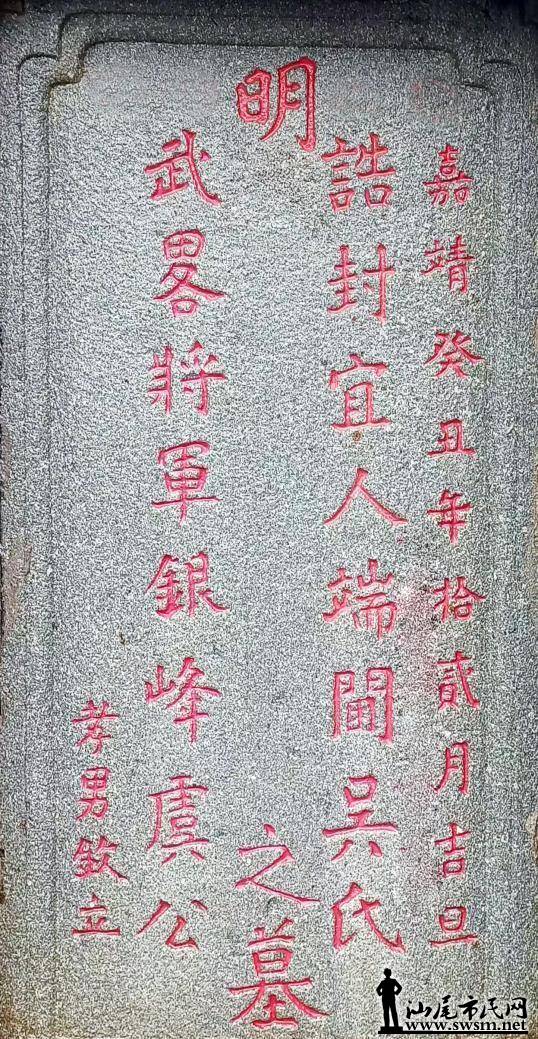 嘉靖癸丑年拾貳月吉旦
誥封宜人端閫吳氏
明
之墓
武畧將軍銀峰虞公
孝男欽立
汕尾市民网
www.swsm.net